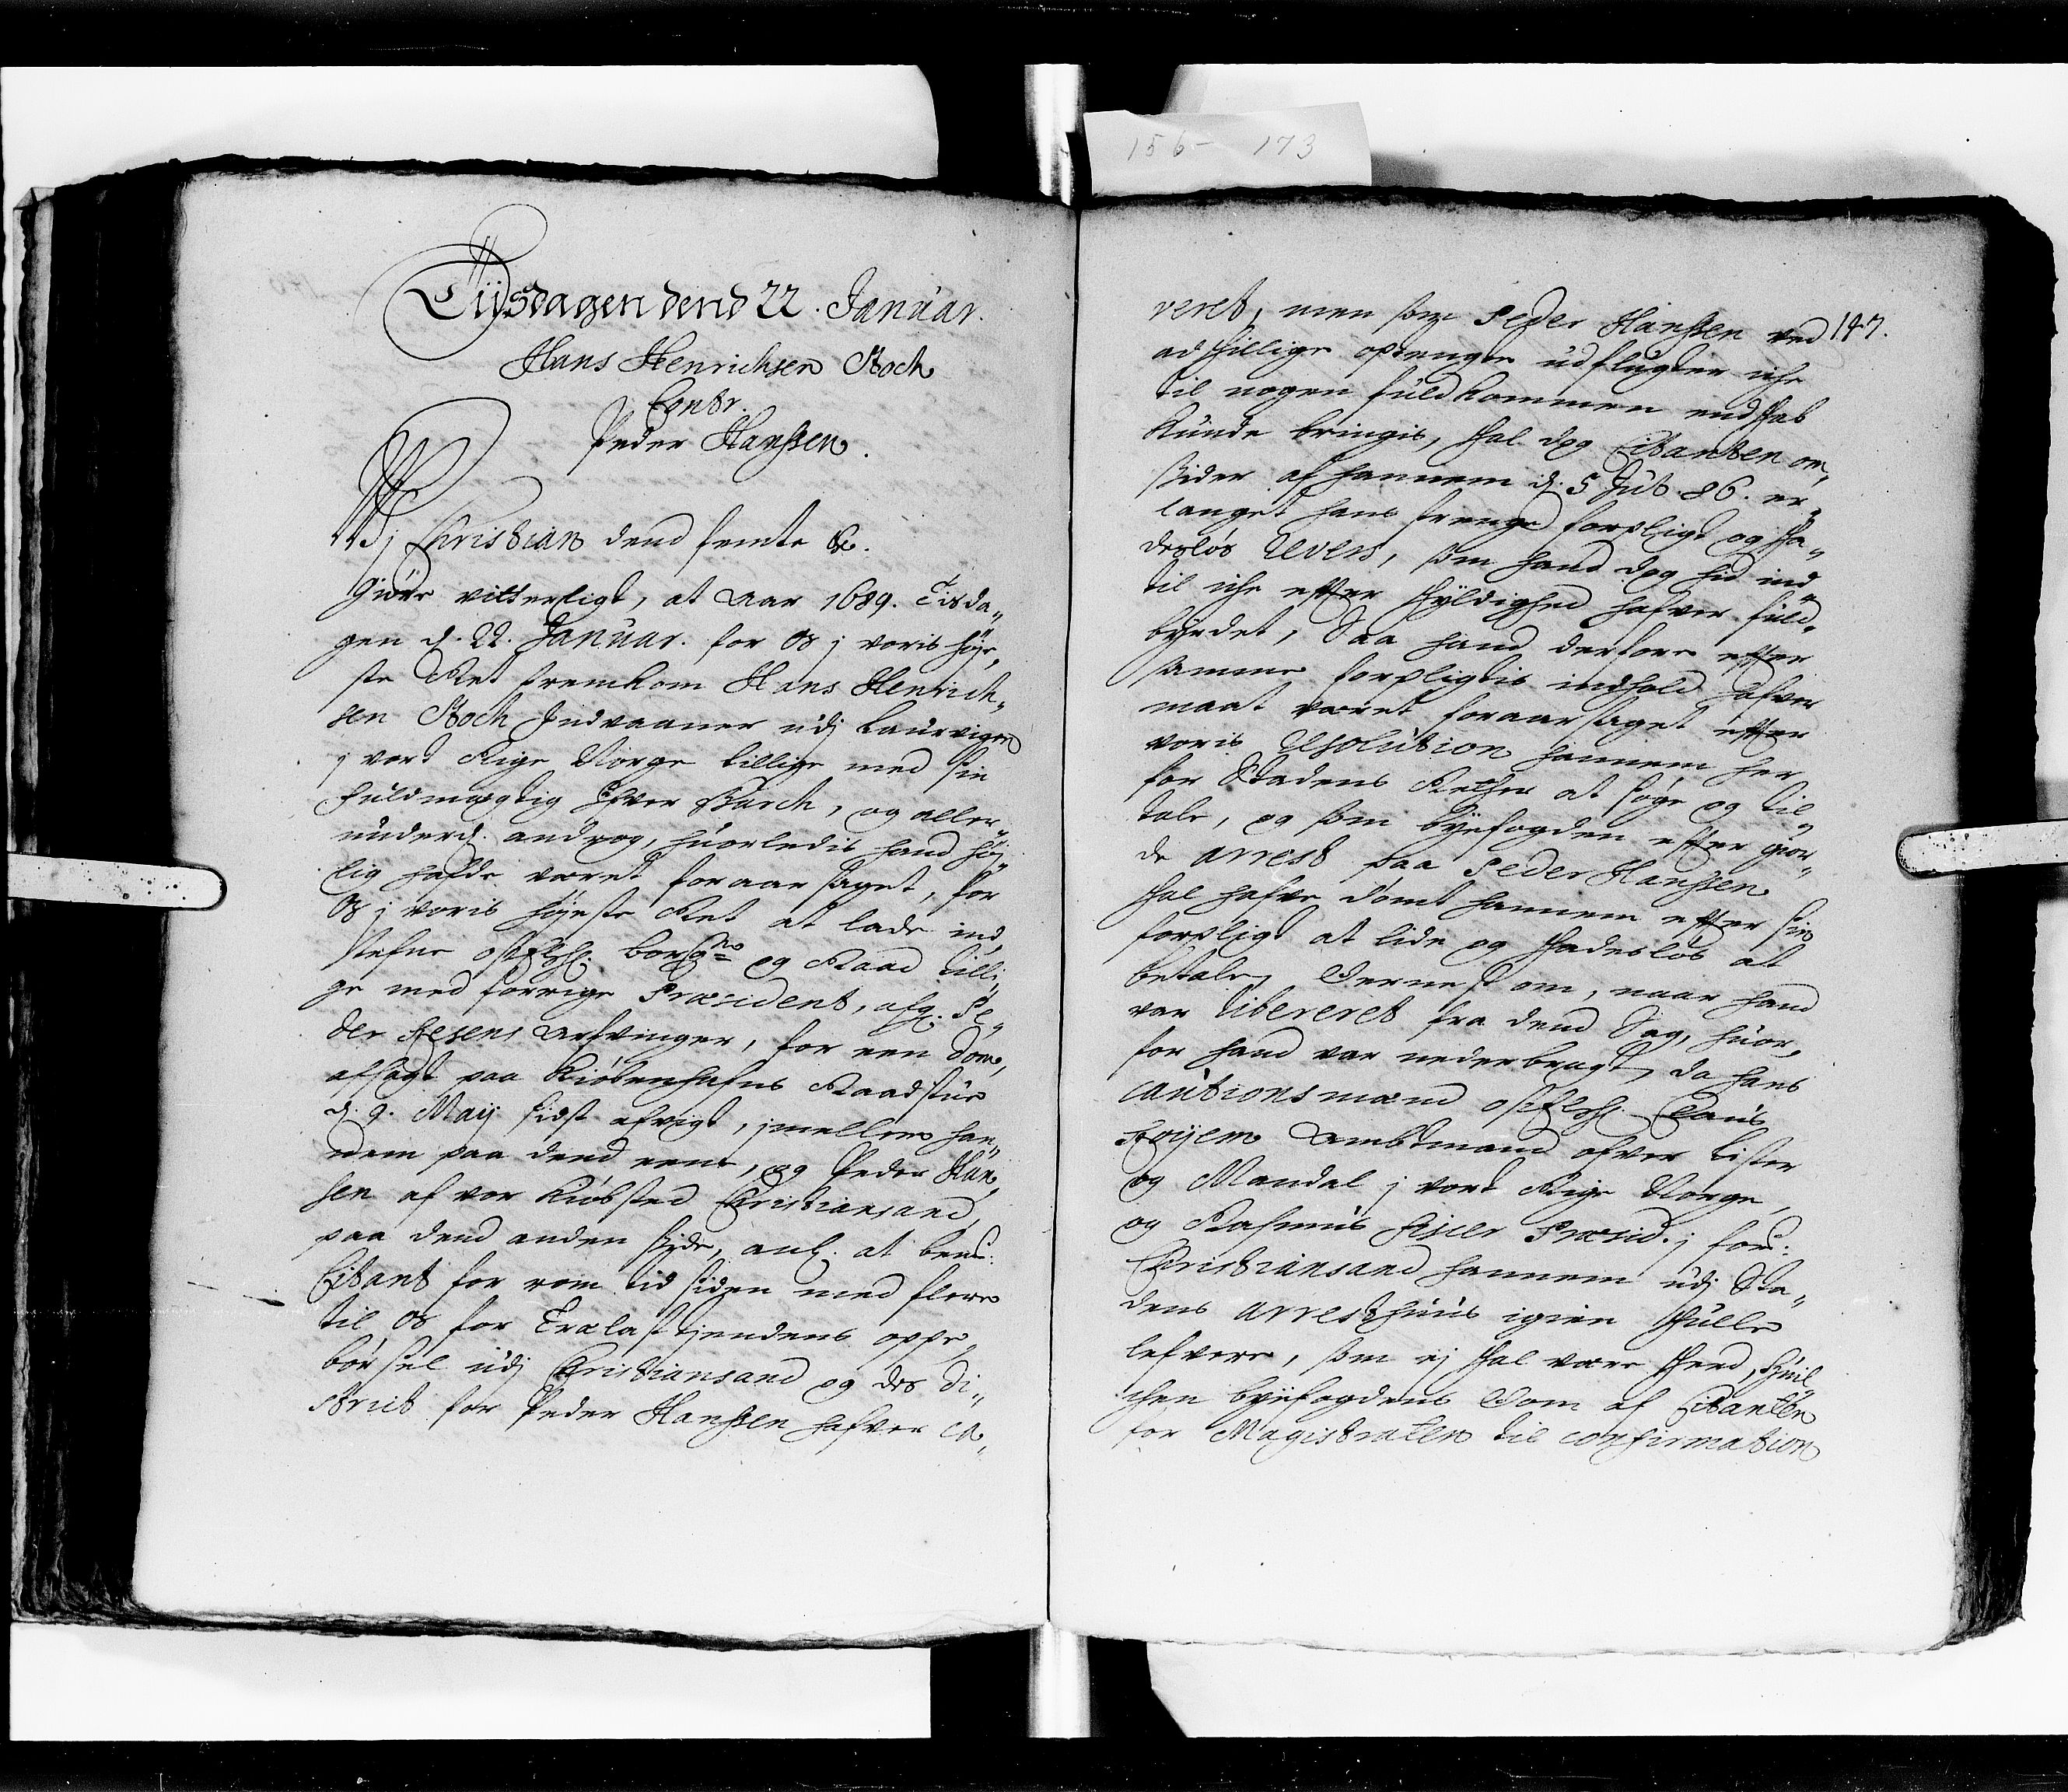 156 - 173
Tijsdagen dend 22. Januar.
Hans Henrichsen Koch
Contr.
Peder Hanssen.
Wj Christian dend femte &c.
Giöre vitterligt, at Aar 1689. Tisda„
gen d. 22. Januar. for Os j voris høye„
ste Ret fremkom Hans Henrich„
sen Koch Indvaaner udj Laurvigen
j vort Rige Norge tillige med sin
fuldmægtig Efver Barch, og aller„
underd. androg, huorledis hand høj„
lig hafde været foraarsaget, for
Os j voris høyeste Ret at lade ind
stefne Borgm. og Raad tilli„
ge med forrige Præsident, afg. Pe„
der Resens Arfvinger, for een Dom,
afsagt paa Kiøbenhafns Raadstue
d. 9. Maij sidst afvigt, jmellem han„
nem paa dend eene, og Peder Han„
sen af vor Kiøbsted Christiansand,
paa dend anden side, anl. at bem.
Citant for rom tid siden med flere
til Os for Trælast tjendens oppe„
børsel udj Christiansand og des Di„
strict for Peder Hanssen hafver ca„
147.
veret, men som Peder Hanssen ved
adskillige optengte udflugter iche
til nogen fuldkommen endskab
kunde bringis, skal dog Citanten om„
sider af hannem d. 5 Jul. 86. er„
langet hans strenge forpligt og ska„
desløs Revers, som hand dog hid ind„
til iche efter skyldighed hafver fuld„
byrdet, Saa hand derfore efter
samme forpligtis indhold hafver
maat været foraarsaget efter
voris Resolution hannem her
for Stadens Retter at søge og til„
tale, og som byefogden efter gior„
de arrest paa Peder Hanssen
skal hafve dømt hannem efter sin
forpligt at lide og skadesløs at
betale, Dernest om, naar hand
var libereret fra dend Sag, huor„
for hand var nederbragt, da hans
cautionsmænd Claus
Røyem Ambtmand ofver Lister
og Mandal j vort Rige Norge,
og Rasmus Præsid. j for:
Christiansand hannem udj Sta„
dens arresthuus igien skulle
lefvere, som ej skal være skeed, huil„
chen byefogdens Dom af Citanten
for Magistraten til confirmation